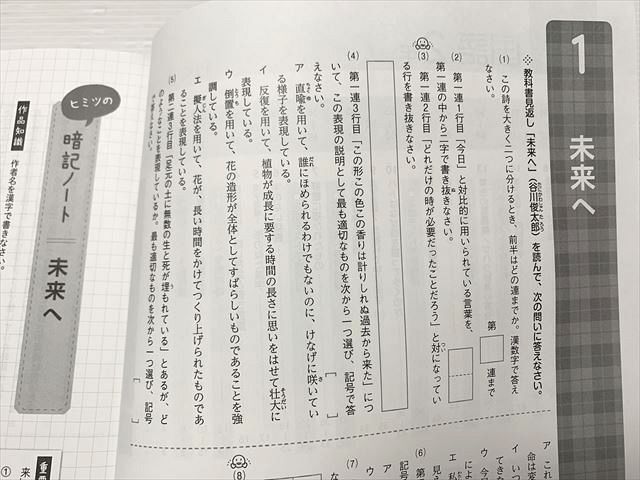 1 未来へ
❖ 教科書見返し「未来へ」(谷川俊太郎)を読んで、次の問いに答えなさい。
(1) この詩を大きく二つに分けるとき、前半はどの連までか。漢数字で答え
なさい。
第 連まで
(2) 第一連1行目「今日」と対比的に用いられている言葉を、
第一連の中から二字で書き抜きなさい。
(3) 第一連2行目「どれだけの時が必要だったことだろう」と対になってい
る行を書き抜きなさい。
(4) 第一連3行目「この形この色この香りは計りしれぬ過去から来た」につ
いて、この表現の説明として最も適切なものを次から一つ選び、記号で答
えなさい。
[ ]
ア 直喩を用いて、誰にほめられるわけでもないのに、けなげに咲いてい
る様子を表現している。
イ 反復を用いて、植物が成長に要する時間の長さに思いをはせて壮大に
表現している。
ウ 倒置を用いて、花の造形が全体としてすばらしいものであることを強
調している。
エ 擬人法を用いて、花が、長い時間をかけてつくり上げられたものであ
ることを表現している。
(5) 第二連3行目「足元の土に無数の生と死が埋もれている」とあるが、ど
のようなことを表現しているか。最も適切なものを次から一つ選び、記号
で答えなさい。
[ ]
ア これ
命は変
イ いつ
てき
ウ 今
エ 私
(6) 第
記号
ア
(7)
(8)
ヒミツの
暗記ノート 未来へ
作品知識
作者名を漢字で書きなさい。
重要
① 来